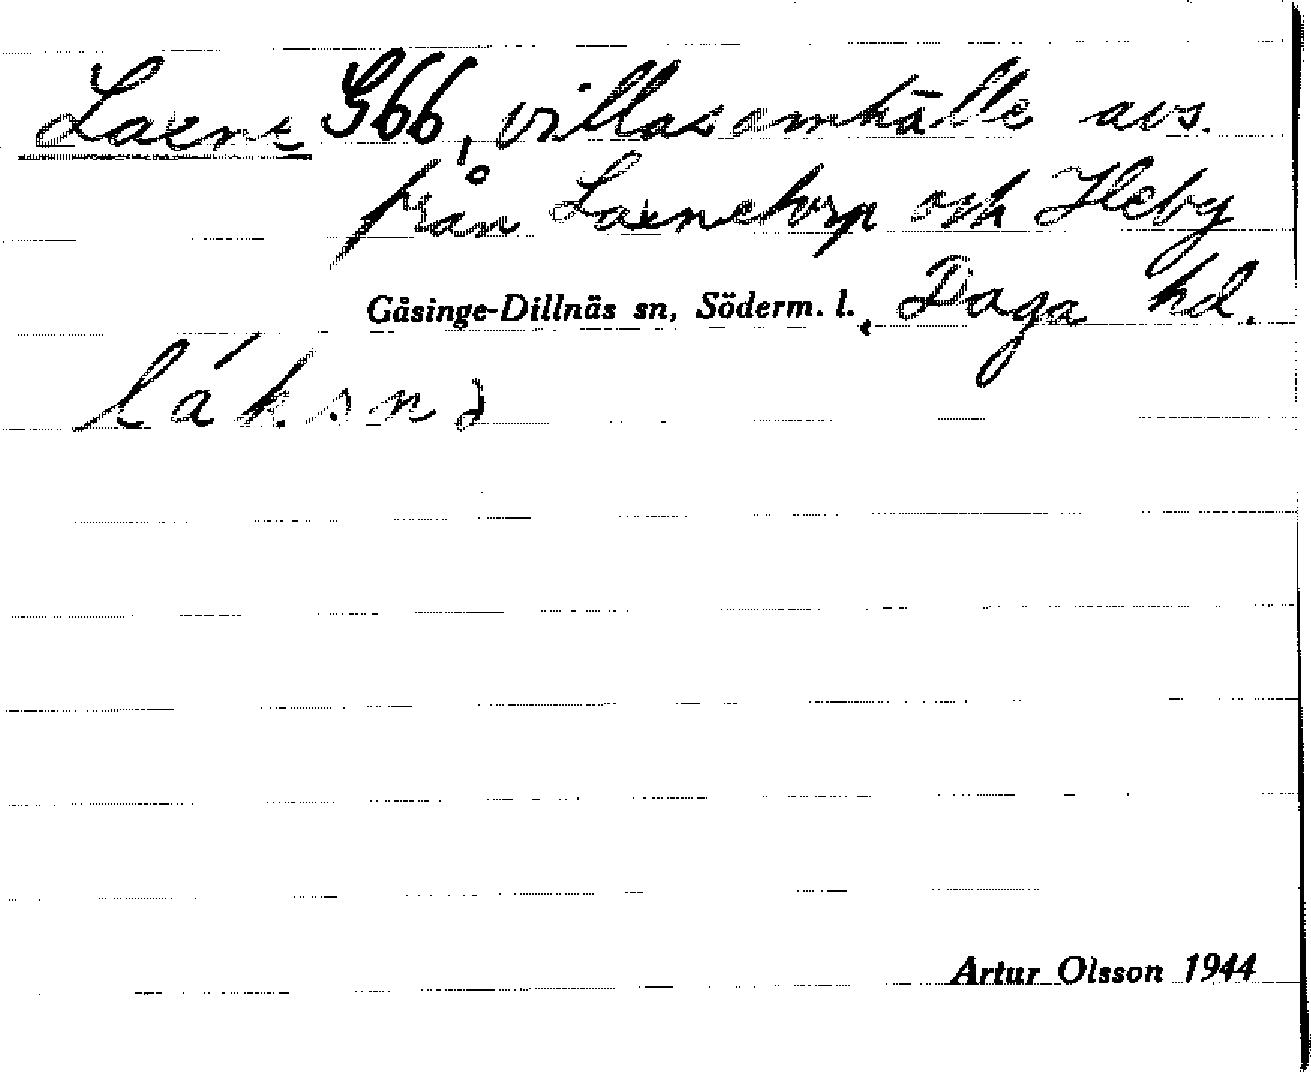 Laxne G66, villasamhälle avs.
från Laxnetorp och Heby
Gåsinge-Dillnäs sn, Söderm. l., Daga hd.
Artur Olsson 1944